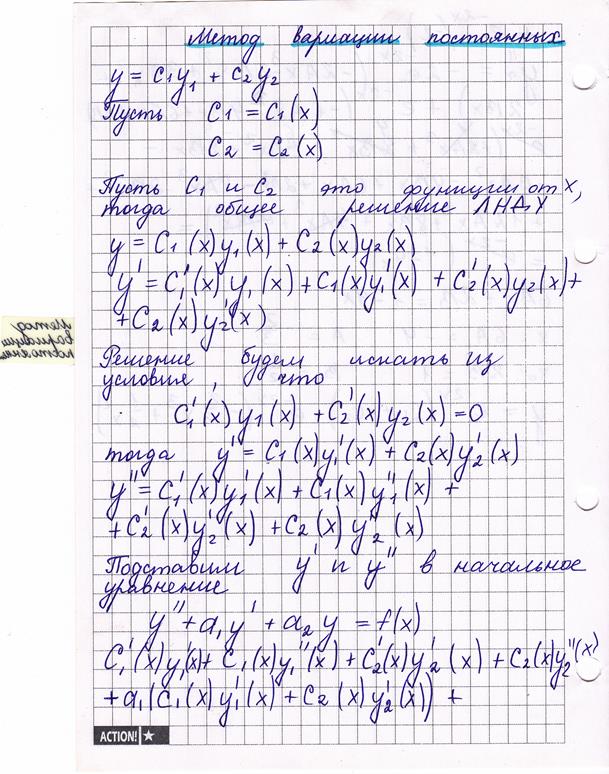 Метод вариации постоянных
y = C1y1 + C2y2
Пусть C1 = C1(x)
C2 = C2(x)
Пусть C1 и C2 это функции от x,
тогда общее решение ЛНДУ
y = C1(x)y1(x) + C2(x)y2(x)
y' = C1'(x)y1(x) + C1(x)y1'(x) + C2'(x)y2(x) +
+ C2(x)y2'(x)
Решение будем искать из
условия, что
C1'(x)y1(x) + C2'(x)y2(x) = 0
тогда y' = C1(x)y1'(x) + C2(x)y2'(x)
y'' = C1'(x)y1'(x) + C1(x)y1''(x) +
+ C2'(x)y2'(x) + C2(x)y2''(x)
Подставим y' и y'' в начальное
уравнение
y'' + a1y' + a2y = f(x)
C1'(x)y1'(x) + C1(x)y1''(x) + C2'(x)y2'(x) + C2(x)y2''(x)
+ a1(C1(x)y1'(x) + C2(x)y2'(x)) +
ACTION!
Метод
вариации
постоянных